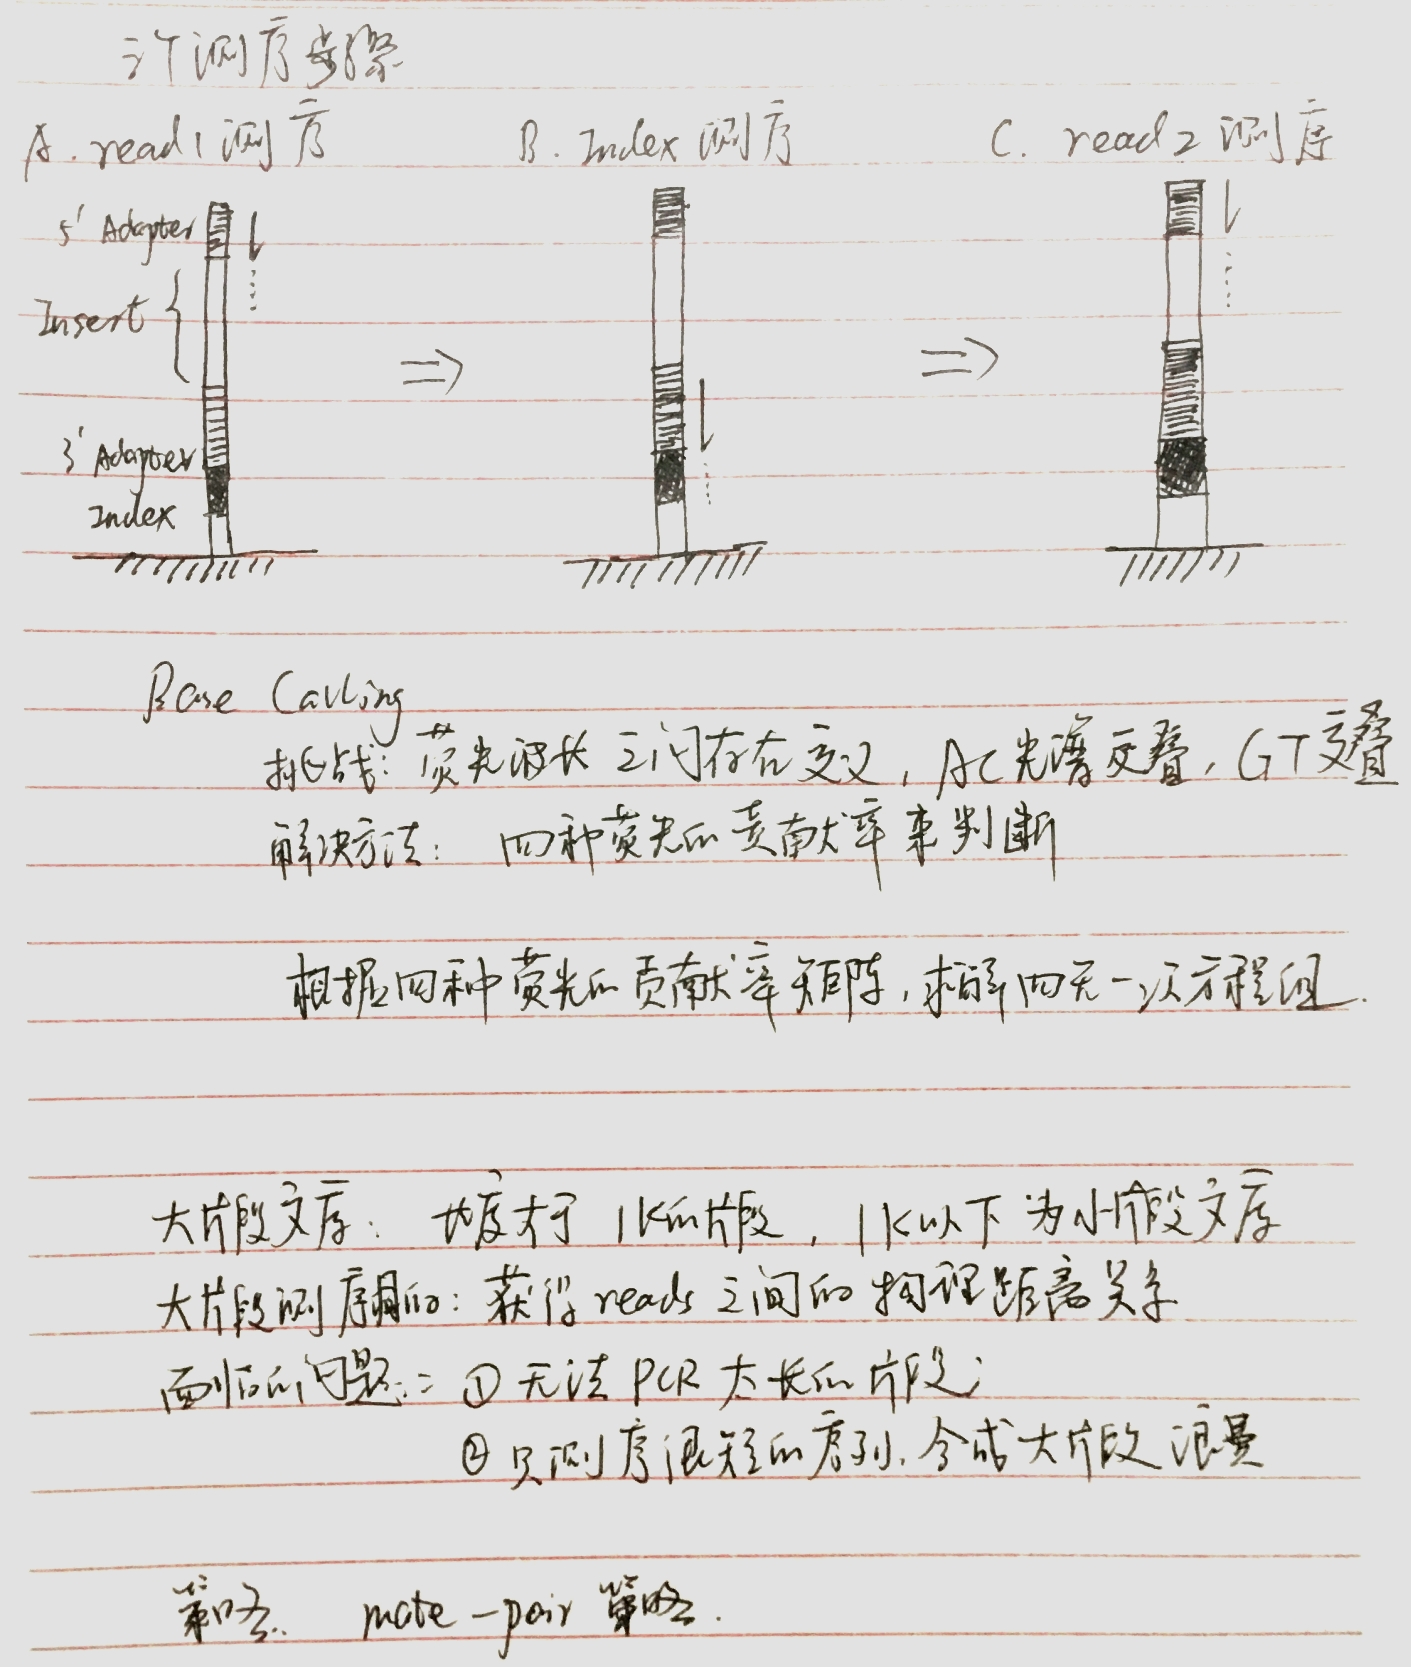 三个测序步骤
A. read1测序 B. Index测序 C. read2测序
5' Adapter
Insert
3' Adapter
Index
Base Calling
挑战: 荧光波长之间存在交叉, AC光谱交叠, GT交叠
解决方法: 四种荧光的贡献率来判断
根据四种荧光的贡献率矩阵, 求解四元一次方程组.
大片段文库: 长度大于1K的片段, 1K以下为小片段文库
大片段测序目的: 获得reads之间的物理距离关系
面临的问题: ①无法PCR太长的片段;
②只测序很短的序列, 合成大片段浪费
策略: mate-pair策略.